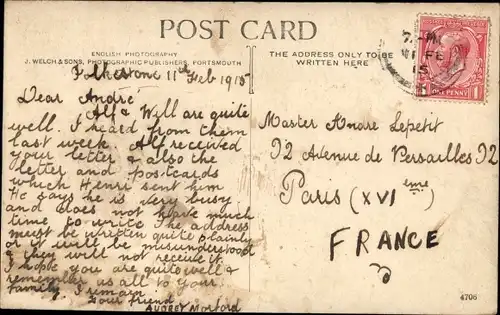 POST CARD
ENGLISH PHOTOGRAPHY
J. WELCH & SONS, PHOTOGRAPHIC PUBLISHERS, PORTSMOUTH
THE ADDRESS ONLY TO BE
WRITTEN HERE
Folkestone 11th Feb 1915
Dear André
Alf & Will are quite
well. I heard from them
last week. Alf received
your letter & also the
letter and postcards
which Henri sent him
He says he is very busy
and does not have much
time to write The address
must be written quite plainly
or it will be misunderstood
& they will not receive it.
I hope you are quite well &
remember us all to your
family. I remain
Your friend
AUDREY Morford
Master Andre Lepetit
92 Avenue de Versailles 92
Paris (XVI ème)
FRANCE
11 FE
15
ONE PENNY
1
4706